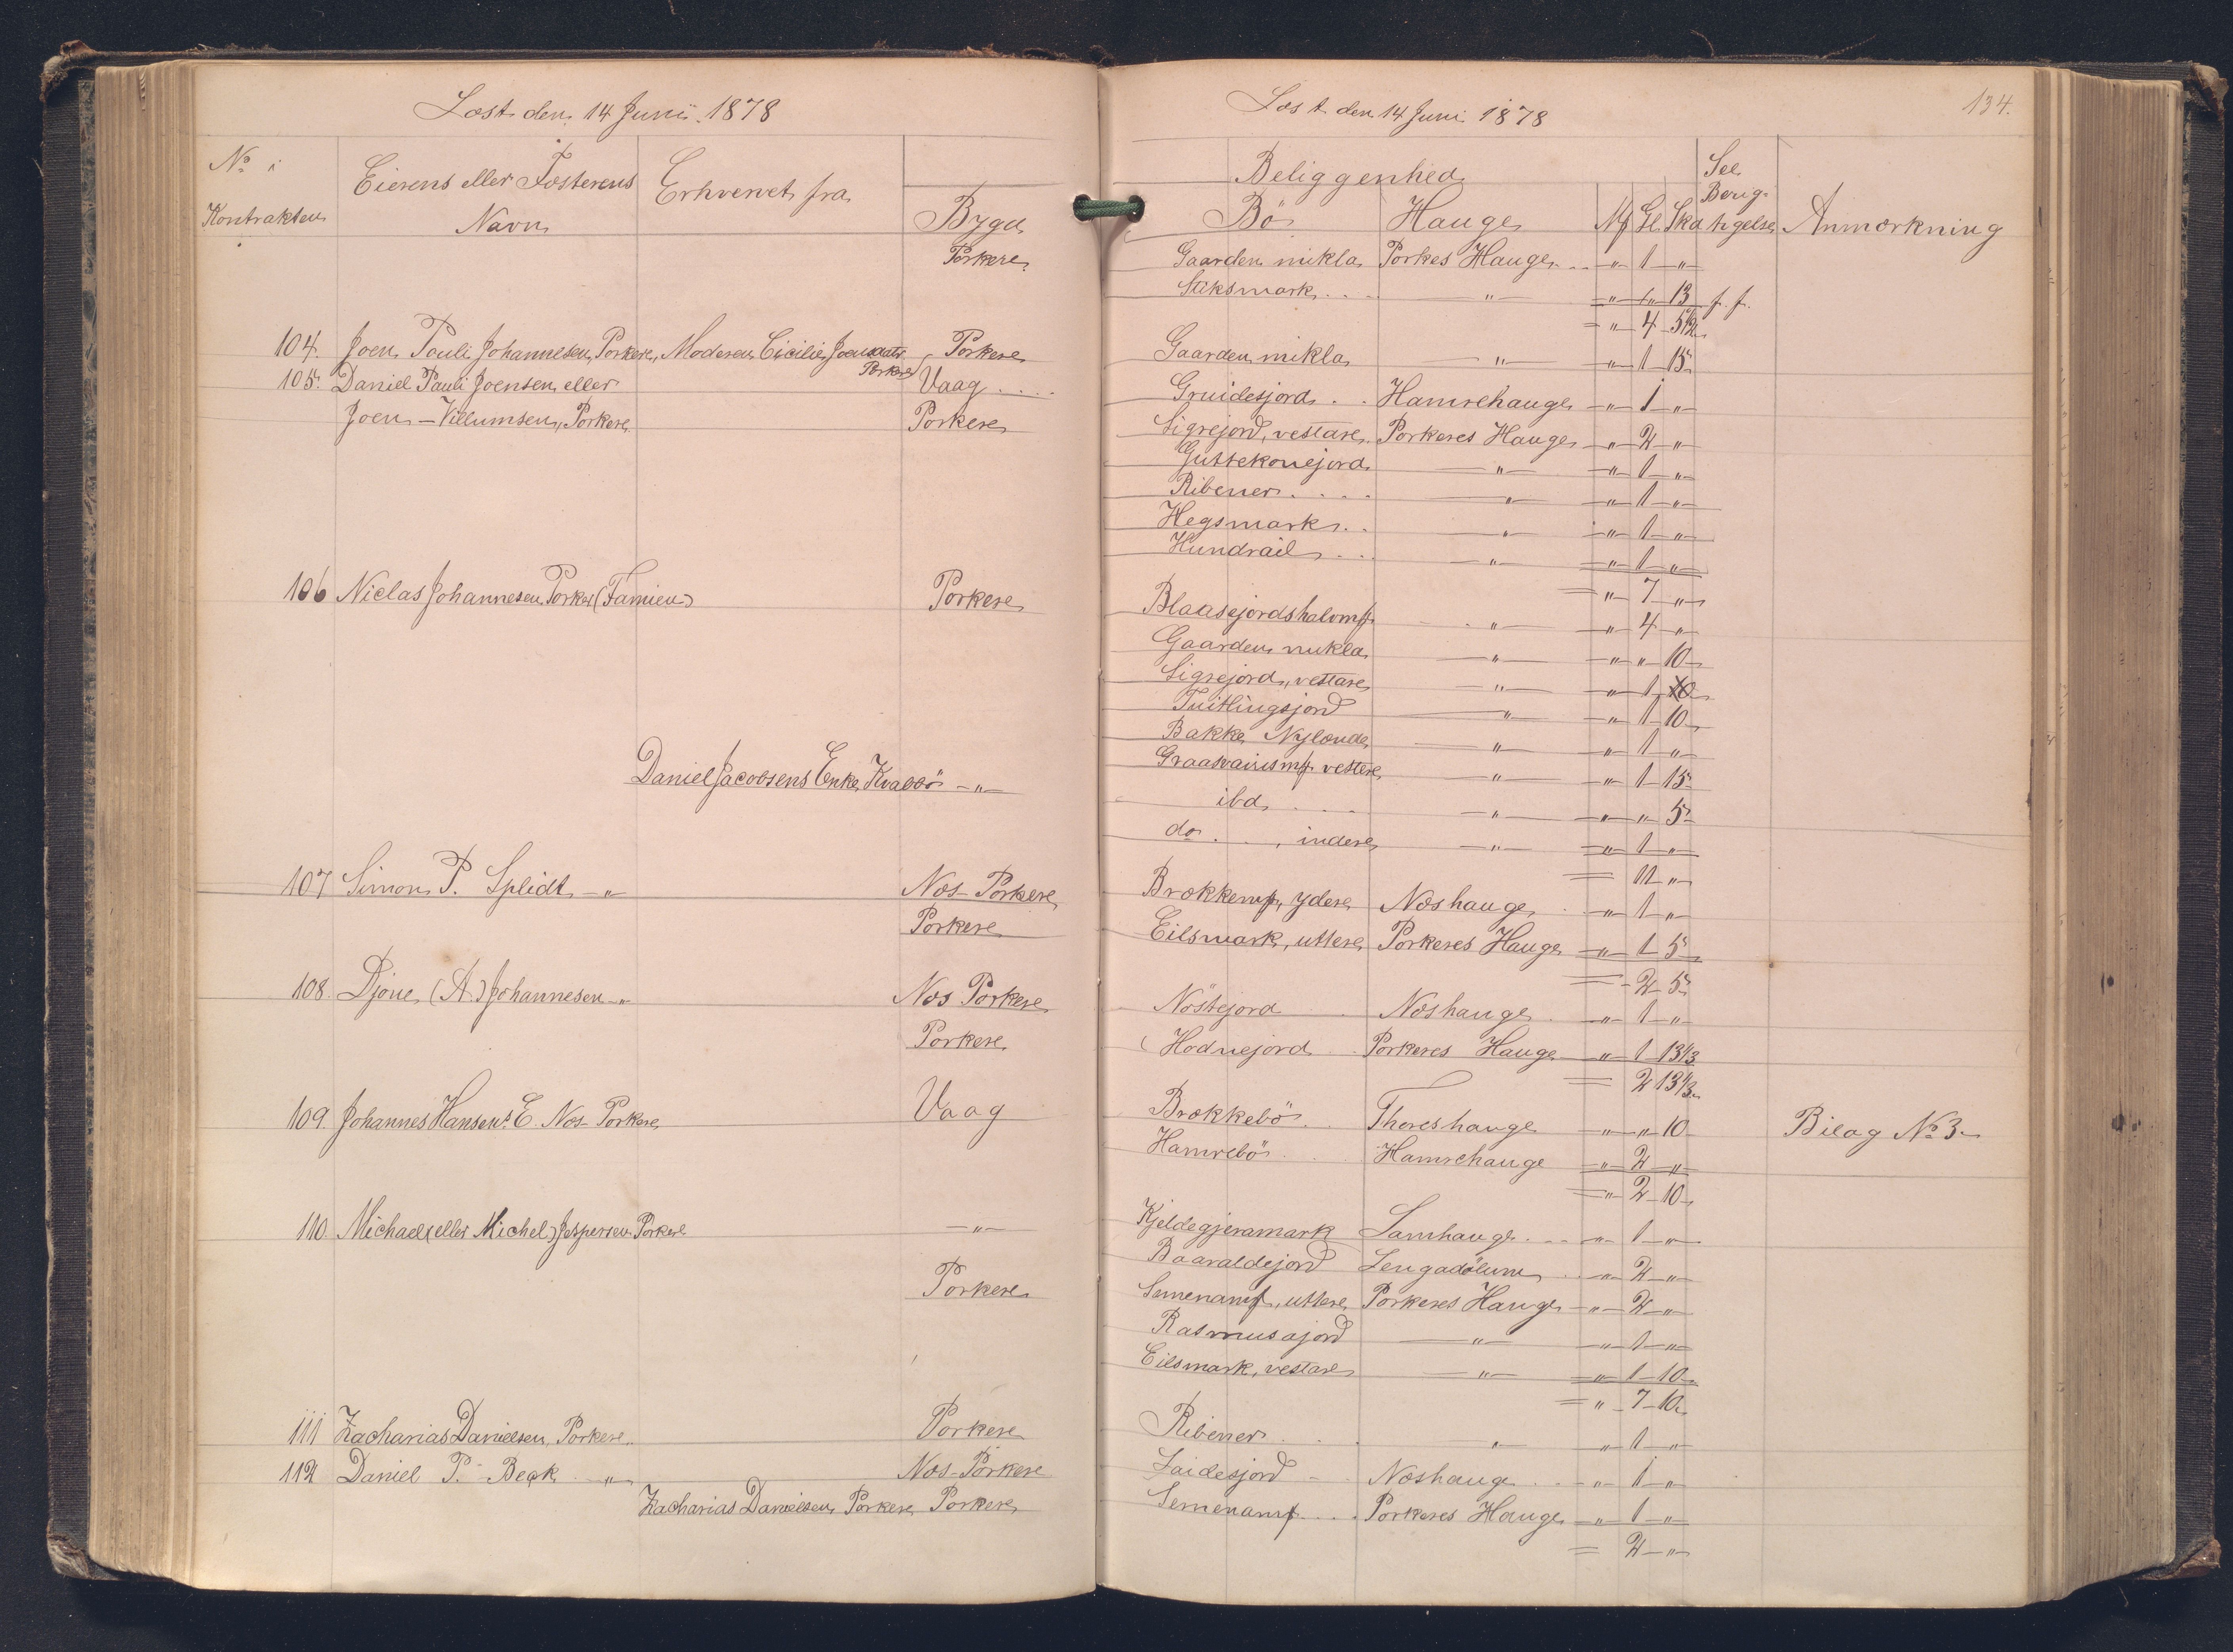 Læst den 14 Junii 1878
No i Kontrakten
Eierens eller Fæsterens Navn
Erhvervet fra
Bygd
Porkere
104. Joen Pauli Johannesen, Porkere, Moderen Cicilie Joensdatr Porkere Porkere
105. Daniel Pauli Joensen eller Vaag . . . .
Joen - Villumsen, Porkere Porkere
106 Niclas Johannesen Porker (Famien) Porkere
Daniel Jacobsens Enke, Kvalbö - " -
107 Simon P. Splidt - " Næs - Porkere
Porkere
108. Djone (A.) Johannesen - " Næs Porkere
Porkere
109. Johannes Hansens E. Næs Porkere Vaag
110. Michael (eller Michel) Jespersen Porkere - " -
Porkere
111 Zacharias Danielsen, Porkere. Porkere
112 Daniel P. - Beck - " - Næs - Porkere
Zacharias Danielsen Porkere Porkere
Læst den 14 Juni 1878
134.
Beliggenhed
Bö Hauge Mk Gl. Ska
Anmærkning
Gaarden mikla Porkes Hauge . . - " - 1 - " -
Stiksmark . . . - " - - " - " 13 f. f.
= " - 4 - 5
Gaarden mikla - " - - " - 1 15
Gruidesjord . . Hamrehauge - " - 1 - " -
Sigrejord, vestare Porkeres Hauge - " - 2 - " -
Guttekonejord - " - - " - 1 - " -
Ribener . . . . - " - - " - 1 - " -
Hegsmark . . - " - - " - 1 - " -
Hundrail . . . - " - - " - 1 - " -
= " - 7 - " -
Blaasejordshalomf - " - - " - 4 - " -
Gaarden mikla - " - - " - " - 10 -
Sigrejord, vestare - " - - " - 1
Tuitlingsjord - " - - " - 1 - 10 -
Bakke Nylænde - " - - " - 1 - " -
Graasvaiismf vestere - " - - " - 1 - 15 -
ibd . . . - " - - " - " 5 -
do . . , indere - " - - " - 1 - " -
= 11 - " -
Brækkemf, ydere Næshauge . - " - 1 - " -
Eilsmark, uttere Porkeres Hauge - " - 1 - 5 -
= - 2 - 5 -
Nöstejord Næshauge . - " - 1 - " -
Hodnejord . . Porkeres Hauge - " - 1 - 13 1/3
= 2 13 1/3
Brækkebö . . Thoreshauge - " - " - 10 - Bilag No 3 -
Hamrebö . . Hamrehauge - " - 2 - " -
= " - 2 - 10 -
Kjeldegjeramark Lamhauge . . . - " - 1 - " -
Baaraldejord Lengadölum . . - " - 2 - " -
Semenamf, uttere Porkeres Hauge - " - 2 - " -
Rasmusajord - " - - " - 1 - " -
Eilsmark, vestare - " - - " - 1 - 10 -
= " - 7 - 10 -
Ribener . . . - " - - " - 1 - " -
Laidesjord - . Næshauge . . . - " - 1 - " -
Semenamf . . . . Porkeres Hauge - " - 1 - " -
= 2 - " -